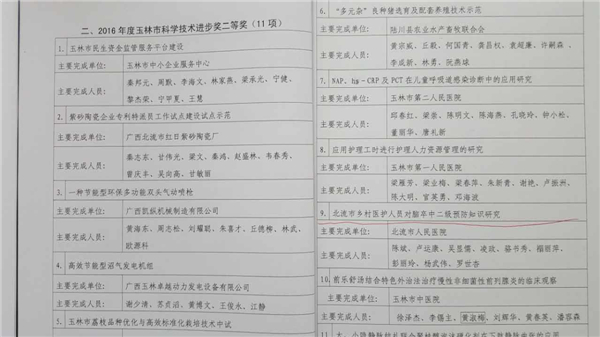 二、2016 年度玉林市科学技术进步奖二等奖（11 项）
1. 玉林市民生资金监管服务平台建设
主要完成单位: 玉林市中小企业服务中心
主要完成人员: 秦邦光、周歆、李海文、林家燕、梁承光、宁健、
黎杰荣、宁甲夏、王慧
2. 紫砂陶瓷企业专利特派员工作试点建设试点示范
主要完成单位: 广西北流市红日紫砂陶瓷厂
主要完成人员: 秦志东、甘伟光、梁文、秦鸿、赵盛林、韦春秀、
曾庆丰、吴向高、甘敏丽
3. 一种节能型环保多功能双头气动喷枪
主要完成单位: 广西凯纵机械制造有限公司
主要完成人员: 黄海东、周志松、刘耀聪、朱喜才、丘德柳、林武、
欧源科
4. 高效节能型沼气发电机组
主要完成单位: 广西玉林卓越动力发电设备有限公司
主要完成人员: 谢少清、苏贞沼、黄博文、王俊永、江静
5. 玉林市荔枝品种优化与高效标准化栽培技术中试
6. “多元杂”良种猪选育及配套养殖技术示范
主要完成单位: 陆川县农业水产畜牧联合会
主要完成人员: 黄宗威、丘毅、何国青、龚昌权、袁超廉、许嗣森、
李成新、林勇、阮燕球
7. NAP、hs-CRP及PCT在儿童呼吸道感染诊断中的应用研究
主要完成单位: 玉林市第二人民医院
主要完成人员: 邱春红、梁崇、陈明文、陈海燕、孔晓玲、钟小松、
董丽华、唐礼新
8. 应用护理工时进行护理人力资源管理的研究
主要完成单位: 玉林市第一人民医院
主要完成人员: 梁雁芳、梁业梅、梁春萍、朱新青、谢艳、卢振洲、
陈大明、官英勇、邓海波
9. 北流市乡村医护人员对脑卒中二级预防知识研究
主要完成单位: 北流市人民医院
主要完成人员: 陈斌、卢运康、吴显儒、凌玫、骆书秀、稳丽萍、
彭丽玲、杨武伟、罗世杏
10. 前乐舒汤结合特色外治法治疗慢性非细菌性前列腺炎的临床观察
主要完成单位: 玉林市中医医院
主要完成人员: 徐泽杰、李锡主、黄淑梅、刘辉华、黄春英、潘容森